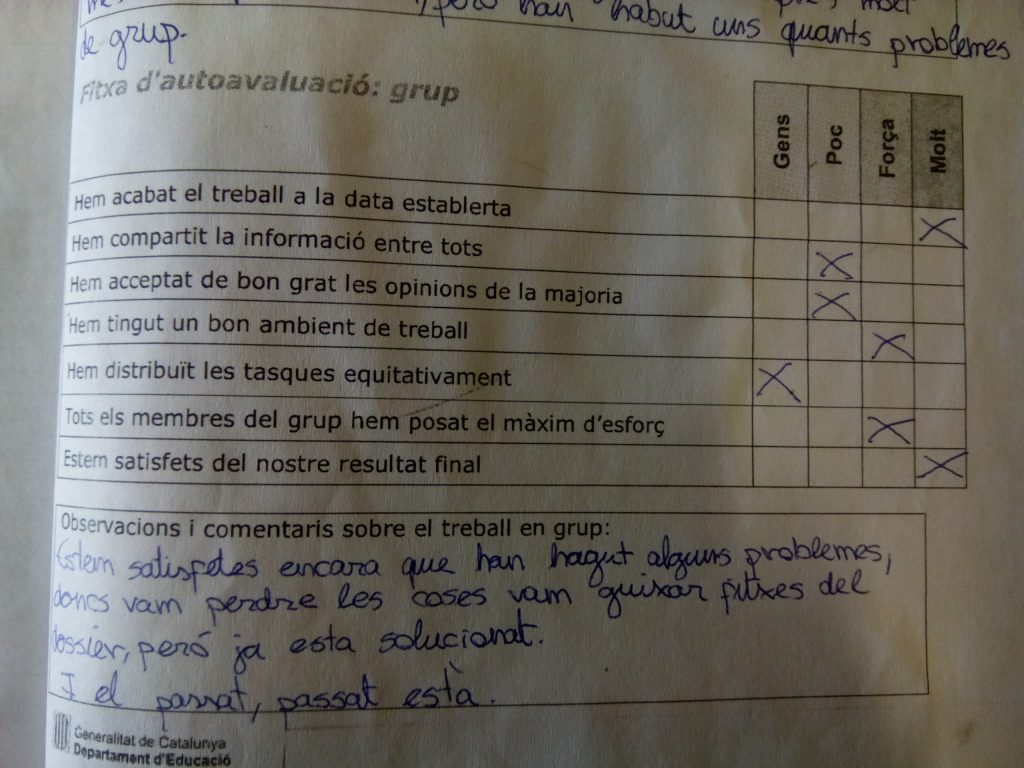 però han habut uns quants problemes
de grup.
Fitxa d'autoavaluació: grup
Gens Poc Força Molt
Hem acabat el treball a la data establerta X
Hem compartit la informació entre tots X
Hem acceptat de bon grat les opinions de la majoria X
Hem tingut un bon ambient de treball X
Hem distribuït les tasques equitativament X
Tots els membres del grup hem posat el màxim d'esforç X
Estem satisfets del nostre resultat final X
Observacions i comentaris sobre el treball en grup:
Estem satisfetes encara que han hagut alguns problemes,
doncs vam perdre les coses vam guixar fitxes del
dossier, peró ja esta solucionat.
I el passat, passat està.
Generalitat de Catalunya
Departament d'Educació